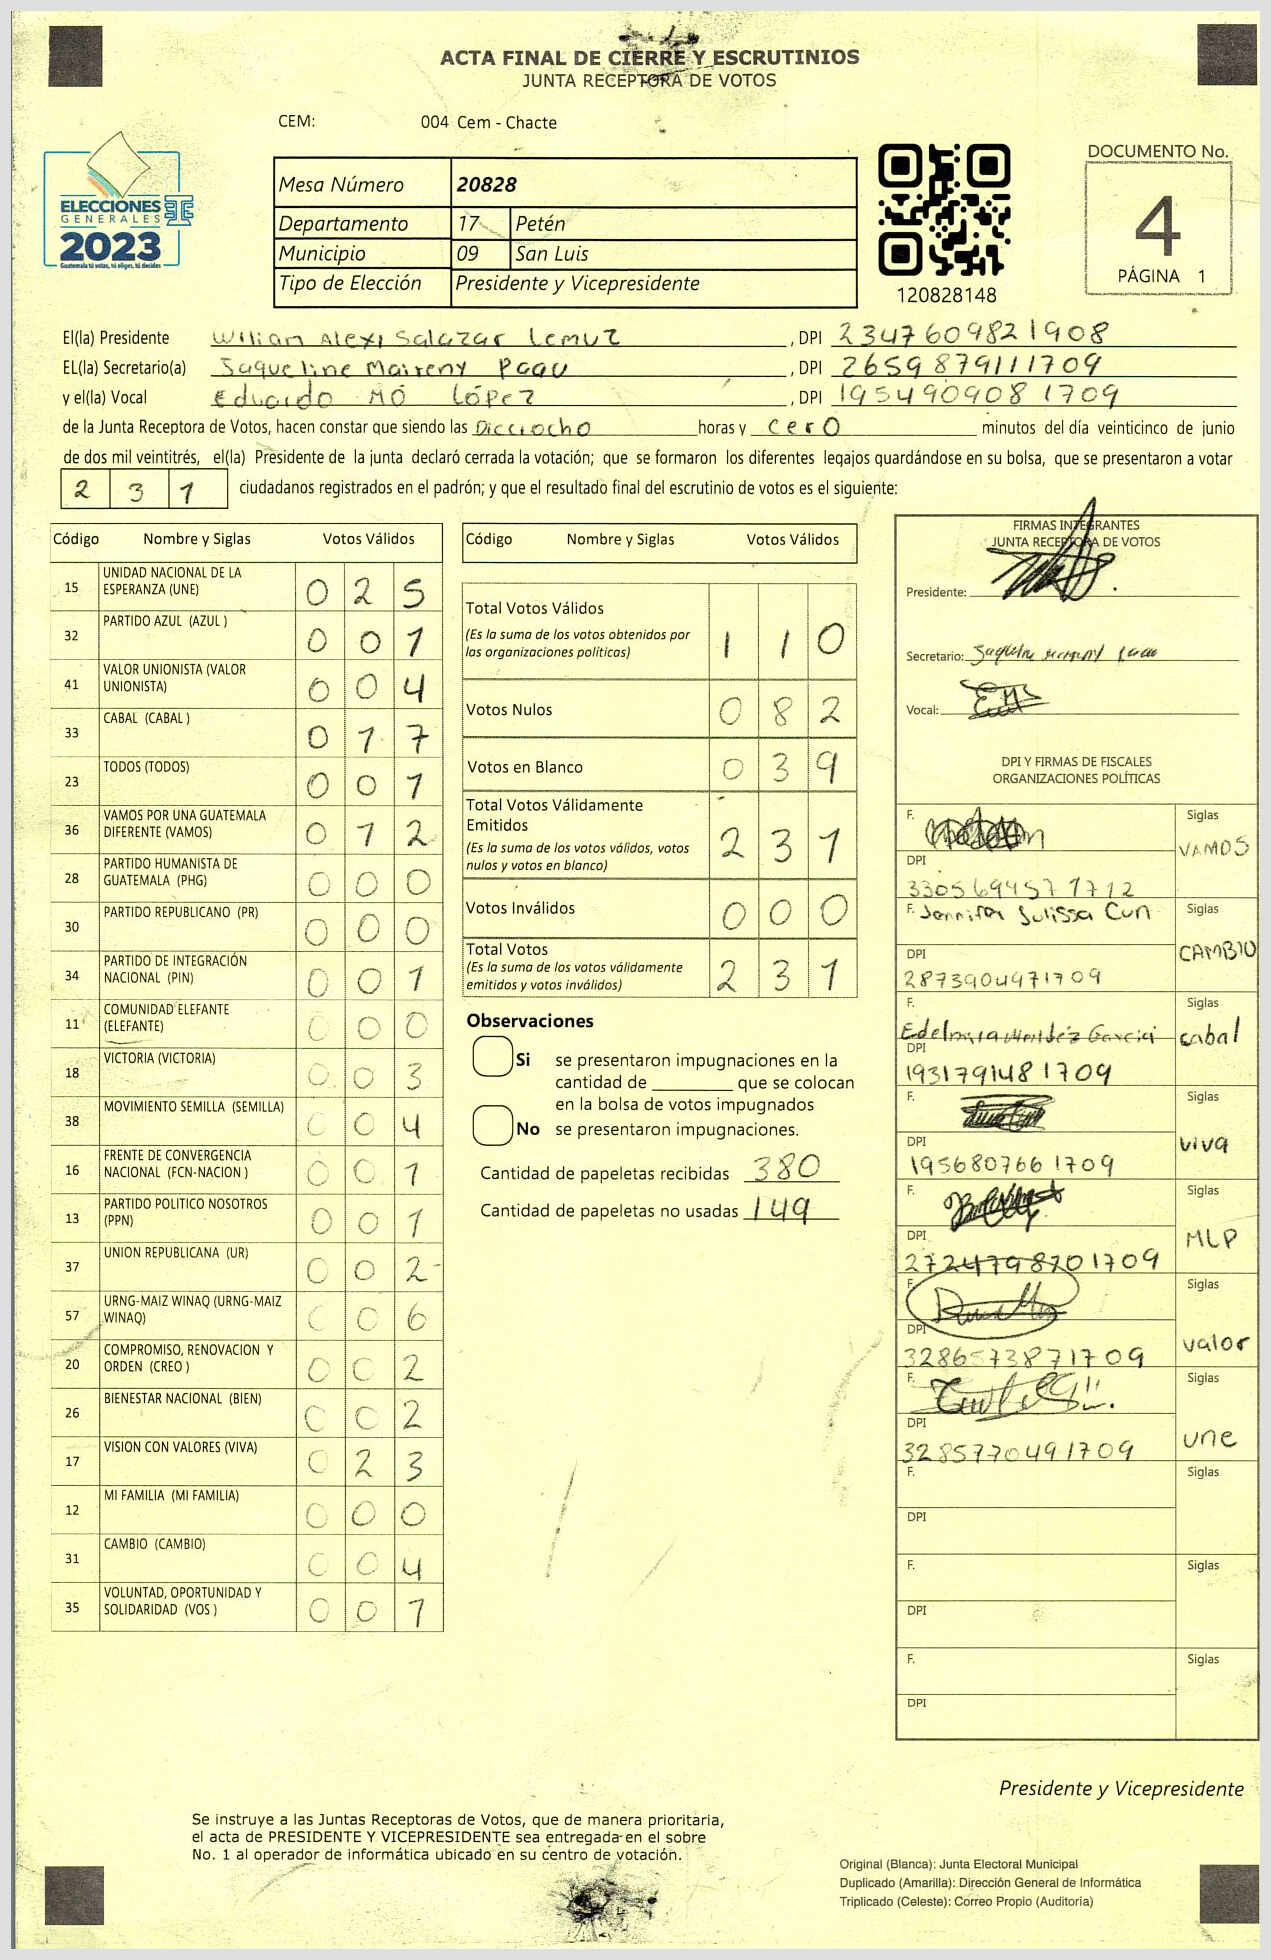 ACTA FINAL DE CIERRE Y ESCRUTINIOS
JUNTA RECEPTORA DE VOTOS
CEM: 004 Cem - Chacte
ELECCIONES
GENERALES
2023
Guatemala tú votas, tú eliges, tú decides
Mesa Número 20828
Departamento 17 Petén
Municipio 09 San Luis
Tipo de Elección Presidente y Vicepresidente
120828148
DOCUMENTO No.
4
PÁGINA 1
El(la) Presidente Wilian Alexi Salazar Lemuz , DPI 2347609821908
EL(la) Secretario(a) Jaqueline Maireny Paau , DPI 2659879111709
y el(la) Vocal Eduardo MÓ López , DPI 1954909081709
de la Junta Receptora de Votos, hacen constar que siendo las Dieciocho horas y cero minutos del día veinticinco de junio
de dos mil veintitrés, el(la) Presidente de la junta declaró cerrada la votación; que se formaron los diferentes legajos guardándose en su bolsa, que se presentaron a votar
2 3 1 ciudadanos registrados en el padrón; y que el resultado final del escrutinio de votos es el siguiente:
Código Nombre y Siglas Votos Válidos
15 UNIDAD NACIONAL DE LA ESPERANZA (UNE) 0 2 5
32 PARTIDO AZUL (AZUL ) 0 0 1
41 VALOR UNIONISTA (VALOR UNIONISTA) 0 0 4
33 CABAL (CABAL ) 0 1 7
23 TODOS (TODOS) 0 0 1
36 VAMOS POR UNA GUATEMALA DIFERENTE (VAMOS) 0 1 2
28 PARTIDO HUMANISTA DE GUATEMALA (PHG) 0 0 0
30 PARTIDO REPUBLICANO (PR) 0 0 0
34 PARTIDO DE INTEGRACIÓN NACIONAL (PIN) 0 0 1
11 COMUNIDAD ELEFANTE (ELEFANTE) 0 0 0
18 VICTORIA (VICTORIA) 0 0 3
38 MOVIMIENTO SEMILLA (SEMILLA) 0 0 4
16 FRENTE DE CONVERGENCIA NACIONAL (FCN-NACION ) 0 0 1
13 PARTIDO POLITICO NOSOTROS (PPN) 0 0 1
37 UNION REPUBLICANA (UR) 0 0 2
57 URNG-MAIZ WINAQ (URNG-MAIZ WINAQ) 0 0 6
20 COMPROMISO, RENOVACION Y ORDEN (CREO ) 0 0 2
26 BIENESTAR NACIONAL (BIEN) 0 0 2
17 VISION CON VALORES (VIVA) 0 2 3
12 MI FAMILIA (MI FAMILIA) 0 0 0
31 CAMBIO (CAMBIO) 0 0 4
35 VOLUNTAD, OPORTUNIDAD Y SOLIDARIDAD (VOS ) 0 0 1
Código Nombre y Siglas Votos Válidos
Total Votos Válidos 1 1 0
(Es la suma de los votos obtenidos por
las organizaciones políticas)
Votos Nulos 0 8 2
Votos en Blanco 0 3 9
Total Votos Válidamente
Emitidos 2 3 1
(Es la suma de los votos válidos, votos
nulos y votos en blanco)
Votos Inválidos 0 0 0
Total Votos 2 3 1
(Es la suma de los votos válidamente
emitidos y votos inválidos)
Observaciones
Si se presentaron impugnaciones en la
cantidad de ________ que se colocan
en la bolsa de votos impugnados
No se presentaron impugnaciones.
Cantidad de papeletas recibidas 380
Cantidad de papeletas no usadas 149
FIRMAS INTEGRANTES
JUNTA RECEPTORA DE VOTOS
Presidente:
Secretario:
Vocal:
DPI Y FIRMAS DE FISCALES
ORGANIZACIONES POLÍTICAS
F. Siglas
VAMOS
DPI
3305694571712
F. Jennifer Julissa Cun Siglas
CAMBIO
DPI
2873904971709
F. Siglas
Edelmira Méndéz García cabal
DPI
1931791481709
F. Siglas
viva
DPI
1956807661709
F. Siglas
MLP
DPI
2724798701709
F. Siglas
valor
DPI
3286573871709
F. Siglas
une
DPI
3285770491709
F. Siglas
DPI
F. Siglas
DPI
F. Siglas
DPI
Presidente y Vicepresidente
Se instruye a las Juntas Receptoras de Votos, que de manera prioritaria,
el acta de PRESIDENTE Y VICEPRESIDENTE sea entregada en el sobre
No. 1 al operador de informática ubicado en su centro de votación.
Original (Blanca): Junta Electoral Municipal
Duplicado (Amarilla): Dirección General de Informática
Triplicado (Celeste): Correo Propio (Auditoría)